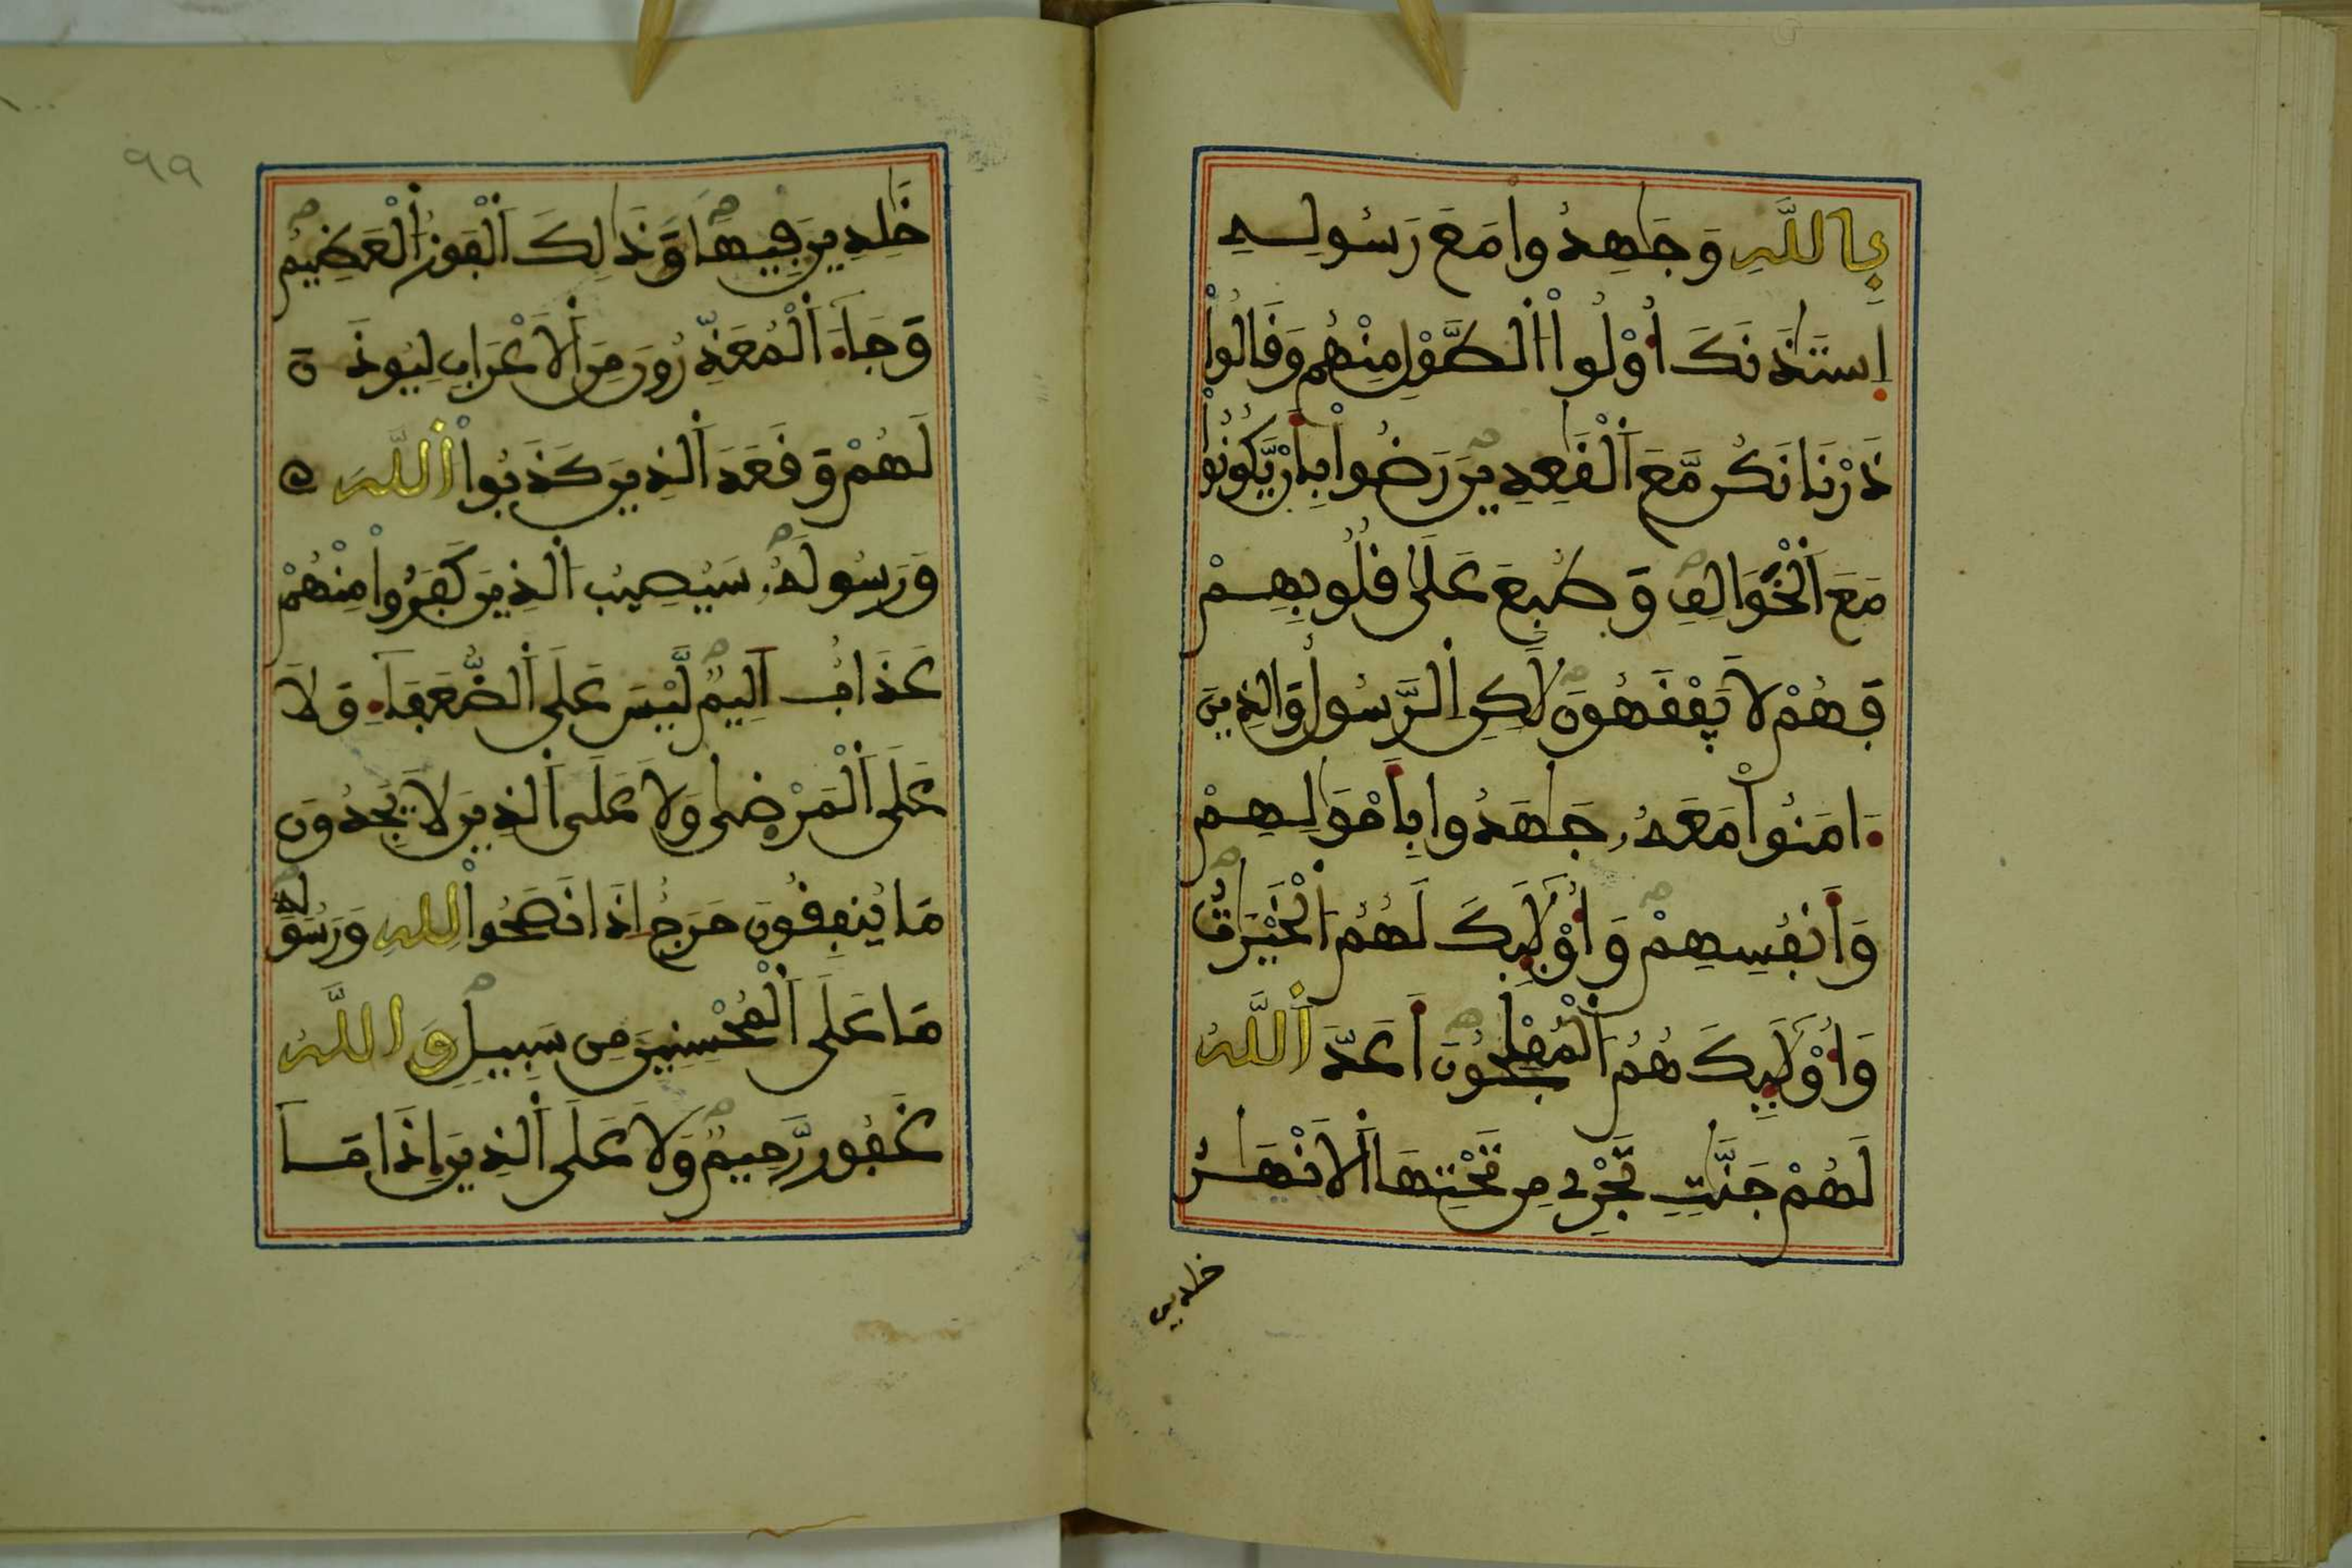 بِاللَّهِ وَجَٰهِدُوا مَعَ رَسُولِهِ
اِسْتَٰذَنَكَ أُوْلُواْ اَلطَّوْلِ مِنْهُمْ وَقَالُواْ
ذَرْنَا نَكُن مَّعَ اَلْقَٰعِدِينَ رَضُواْ بِأَنْ يَّكُونُواْ
مَعَ اَلْخَوَالِفِ وَطُبِعَ عَلَىٰ قُلُوبِهِمْ
فَهُمْ لَا يَفْقَهُونَ لَٰكِنِ اِلرَّسُولُ وَالذِينَ
ءَامَنُواْ مَعَهُۥ جَٰهَدُوا بِأَمْوَٰلِهِمْ
وَأَنفُسِهِمْ وَأُوْلَٰئِكَ لَهُمُ اُلْخَيْرَٰتُ
وَأُوْلَٰئِكَ هُمُ اُلْمُفْلِحُونَ أَعَدَّ اَللَّهُ
لَهُمْ جَنَّٰتٍ تَجْرِے مِن تَحْتِهَا اَلَانْهَٰرُ
خلدين
خَٰلِدِينَ فِيهَا وَذَٰلِكَ اَلْفَوْزُ اُلْعَظِيمُ
وَجَآءَ اَلْمُعَذِّرُونَ مِنَ اَلَاعْرَابِ لِيُوذَنَ
لَهُمْ وَقَعَدَ اَلذِينَ كَذَبُواْ اُللَّهَ
وَرَسُولَهُۥ سَيُصِيبُ اُلذِينَ كَفَرُواْ مِنْهُمْ
عَذَابٌ اَلِيمٌ لَّيْسَ عَلَى اَلضُّعَفَآءِ وَلَا
عَلَى اَلْمَرْضَىٰ وَلَا عَلَى اَلذِينَ لَا يَجِدُونَ
مَا يُنفِقُونَ حَرَجٌ اِذَا نَصَحُواْ لِلهِ وَرَسُولِهِ
مَا عَلَى اَلْمُحْسِنِينَ مِن سَبِيلٍ وَاللَّهُ
غَفُورٌ رَّحِيمٌ وَلَا عَلَى اَلذِينَ إِذَا مَا
٩٩